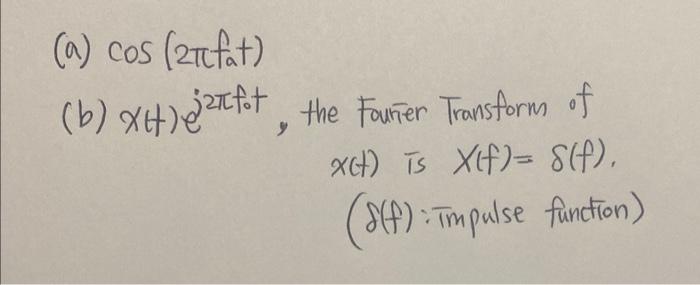 (a) cos (2πf₀t)
(b) x(t)e^{j2πf₀t}, the Fourier Transform of
x(t) is X(f) = δ(f).
(δ(f) : impulse function)